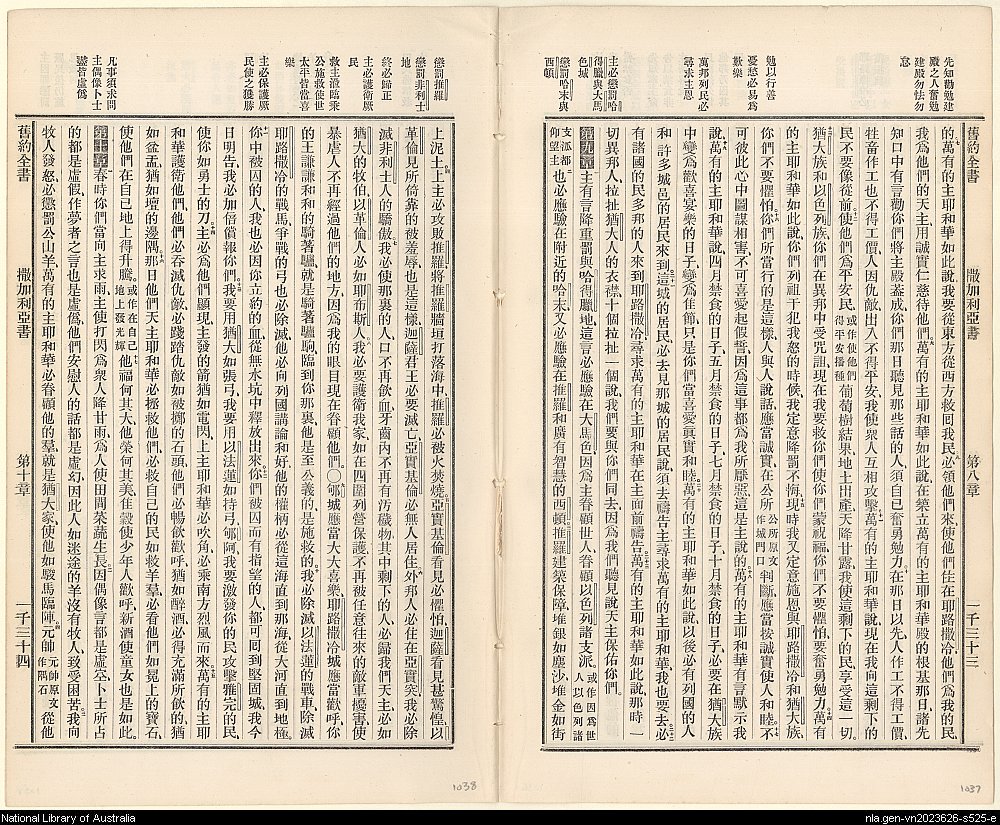 先知勸勉建
殿之人奮勉
建殿勿怯勿
怠
勉以行善
憂愁必易爲
歡樂
萬邦列民必
尋求主恩
主必懲罰哈
得臘與大馬
色城
懲罰哈末與
西頓
舊約全書 撒加利亞書 第八章 一千三十三
的萬有的主耶和華如此說我要從東方從西方救回我民必領他們來使他們住在耶路撒冷他們爲我的民
我爲他們的天主用誠實仁慈待他們萬有的主耶和華如此說在築立萬有的主耶和華殿的根基那日諸先
知口中有言勸你們將主殿葢成你們那日聽見那些話的人須自己奮勇勉力在那日以先人作工不得工價
牲畜作工也不得工價人因仇敵出入不得平安我使衆人互相攻擊萬有的主耶和華說現在我向這遺剩下的
民不要像從前使他們爲平安民或作使他們得平安播種葡萄樹生結果地土出產天降甘露我使這剩下的民享受這一切
猶大族和以色列族你們在異邦中受咒詛現在我要救你們使你們蒙祝福你們不要懼怕要奮勇勉力萬有
的主耶和華如此說你們列祖干犯我怒的時候我定意降罰不悔現時我又定意施恩與耶路撒冷和猶大族
你們不要懼怕你們所當行的是這樣人與人說話應當誠實在公所公所原文作城門口判斷應當按誠實使人和睦不
可彼此心中圖謀相害不可喜愛起假誓因爲這事都爲我所厭惡這是主說的萬有的主耶和華有言默示我
說萬有的主耶和華說四月禁食的日子五月禁食的日子七月禁食的日子十月禁食的日子必要在猶大族
中變爲歡喜宴樂的日子變爲佳節只是你們當喜愛眞實和睦萬有的主耶和華如此說以後必有列國的人
和許多城邑的居民來到這城的居民必去見那城的居民說須去禱吿主尋求萬有的主耶和華我也要去必
有諸國的民多邦的人來到耶路撒冷尋求萬有的主耶和華在主面前禱吿萬有的主耶和華如此說那時一
切異邦人拉扯猶大人的衣襟十個拉扯一個說我們要與你們同去因爲我們聽見說天主保佑你們
第九章主有言降重罰與哈得臘地這言必應驗在大馬色因爲主眷顧世人眷顧以色列諸支派或作因爲世人以色列諸
支派都仰望主也必應驗在附近的哈末又必應驗在推羅和廣有智慧的西頓推羅建築保障堆銀如塵沙堆金如街
懲罰推羅
懲罰非利士
地
終必歸正
主必護衛厥
民
救主涖臨乘
公施救使世
太平皆當喜
樂
主必保護厥
民使之獲勝
凡事須求問
主偶像卜士
鑒皆虛僞
上泥土主必攻敗推羅將推羅牆垣打落海中推羅必被火焚燒亞實基倫看見必懼怕迦薩看見甚驚惶以
革倫見所倚靠的被羞辱也是這樣迦薩君王必要滅亡亞實基倫必無人居住外邦人必住在亞實突我必除
滅非利士人的驕傲我必使那裏的人口不再飲血牙齒內不再有污穢物其中剩下的人必歸我們天主必如
猶大的牧伯以革倫人必如耶布斯人我必要護衛我家如在四圍列營保護不再被任意往來的敵軍擾害
暴虐人不再經過他們的地方因爲我的眼目現在眷顧他們〇郇城應當大大喜樂耶路撒冷城應當歡呼你
的王謙謙和和的騎著驢就是騎著驢駒臨到你那裏他是至公義的是施救的我必除滅以法蓮的戰車除滅
耶路撒冷的戰馬爭戰的弓也必除滅他必向列國講論和好他的權柄必從這海直到那海從大河直到地極
你中被囚的人我也必因你立約的血從無水坑中釋放出來你們被囚而有指望的人都可回到堅固城我今
日明吿我必加倍償報你們我要用猶大如張弓我要用以法蓮如持弓郇阿我要激發你的民攻擊雅完的民
使你如勇士的刀主必爲他們顯現主發的箭猶如電閃上主耶和華必吹角必乘南方烈風而來萬有的主耶
和華護衛他們他們必呑滅仇敵必踐踏仇敵如被擲的石頭他們必暢飲歡呼猶如醉酒必得充滿所飲的猶
如盆盂猶如壇的邊隅那日他們天主耶和華必拯救他們必救自己的民如救羊羣必看他們如冕上的寶石
使他們在自已地上得升騰或作在自己地上發光輝他福何其大他榮何其美佳穀使少年人歡呼新酒使童女也是如此
第十章春時你們當向主求雨主使打閃爲衆人降甘雨爲人使田間菜蔬生長因偶像言都是虛空卜士所占
的都是虛假作夢者之言也是虛僞他們安慰人的話都是虛幻因此人如迷途的羊沒有牧人致受困苦我向
牧人發怒必懲罰公山羊萬有的主耶和華必眷顧他的羣就是猶大家使他如駿馬臨陣元帥元帥原文作隅石從他
舊約全書 撒加利亞書 第十章 一千三十四
1038
1037
National Library of Australia
nla.gen-vn2023626-s525-e